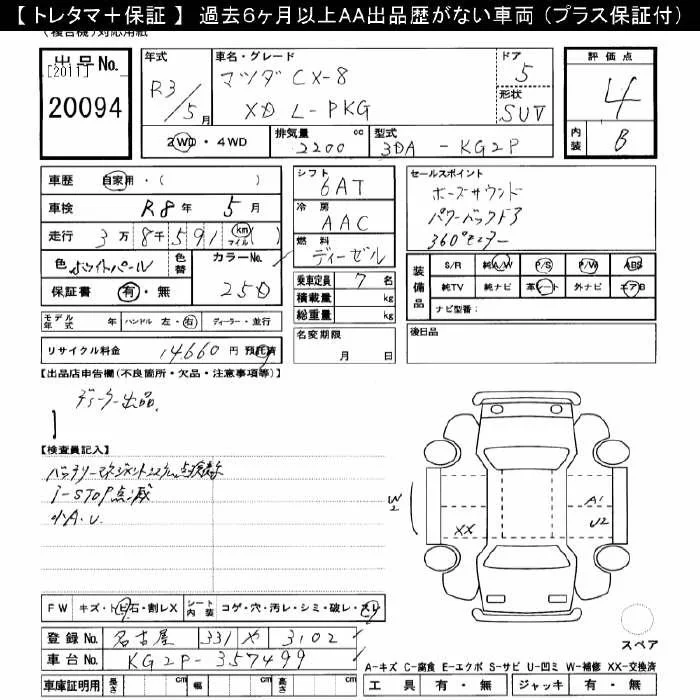 【 トレタマ＋保証 】 過去６ヶ月以上ＡＡ出品歴がない車両 (プラス保証付)
(複合機) 対応用紙
出品No.
[2011]
20094
年式
R3/5月
車名・グレード
マツダ CX-8
XD L-PKG
ドア
5
形状
SUV
2WD・4WD
排気量 cc
2200
型式
3DA - KG2P
評価点
4
内装
B
車歴 自家用・( )
車検 R8年 5月
走行 3万 8千 591 km マイル ( )
色 ホワイトパール
色替
カラーNo.
25D
保証書 有・無
モデル年式 年 ハンドル 左・右 ディーラー・並行
リサイクル料金 14660円 預託済
シフト
6AT
冷房
AAC
燃料
ディーゼル
乗車定員 7名
積載量 kg
総重量 kg
名変期限
月 日
セールスポイント
ボーズサウンド
パワーバックドア
360°モニター
装備品
S/R 純A/W P/S P/W ABS
純TV 純ナビ 革シート 外ナビ エアB
ナビ型番：
後日品
【出品店申告欄(不良箇所・欠品・注意事項等)】
ディーラー出品
【検査員記入】
i-STOP点滅
小A.U.
W2
XX
A1
U2
スペア
FW キズ・トビ石・割レX シート内装 コゲ・穴・汚レ・シミ・破レ・スレ
登録No. 名古屋 331 や 3102
車台No. KG2P-357499
車庫証明用 長さ cm 幅 cm 高さ cm
A-キズ C-腐食 E-エクボ S-サビ U-凹ミ W-補修 XX-交換済
工具 有・無 ジャッキ 有・無